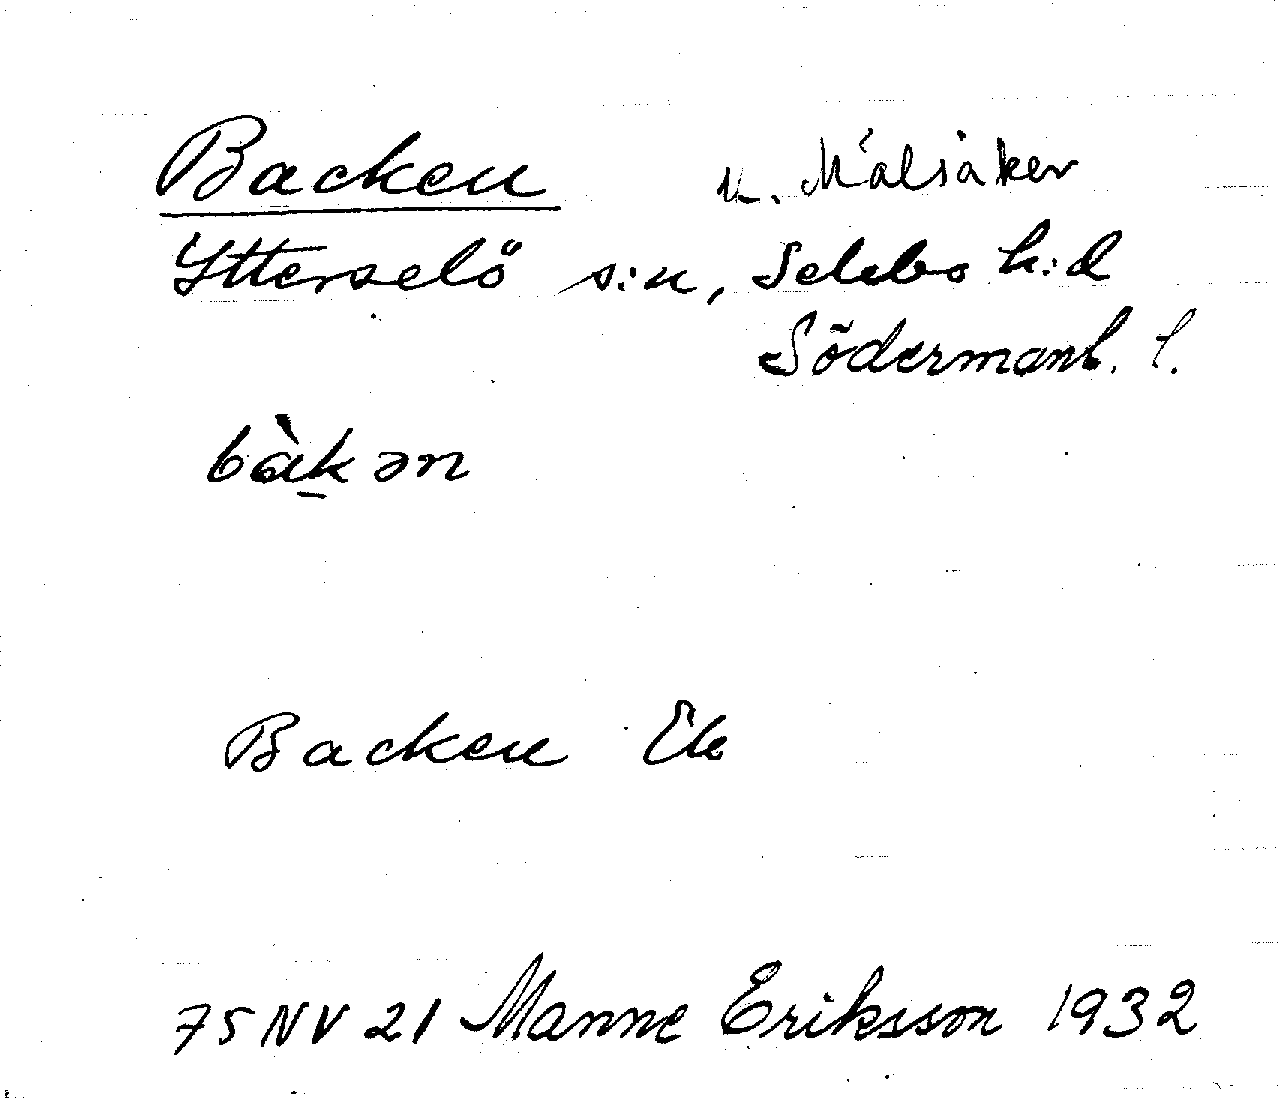 Backen u. Målsåker
Ytterselö s:n, Selebo h:d
Södermanl. l.
bàk̲ ən
Backen Ek
75 NV 21 Manne Eriksson 1932